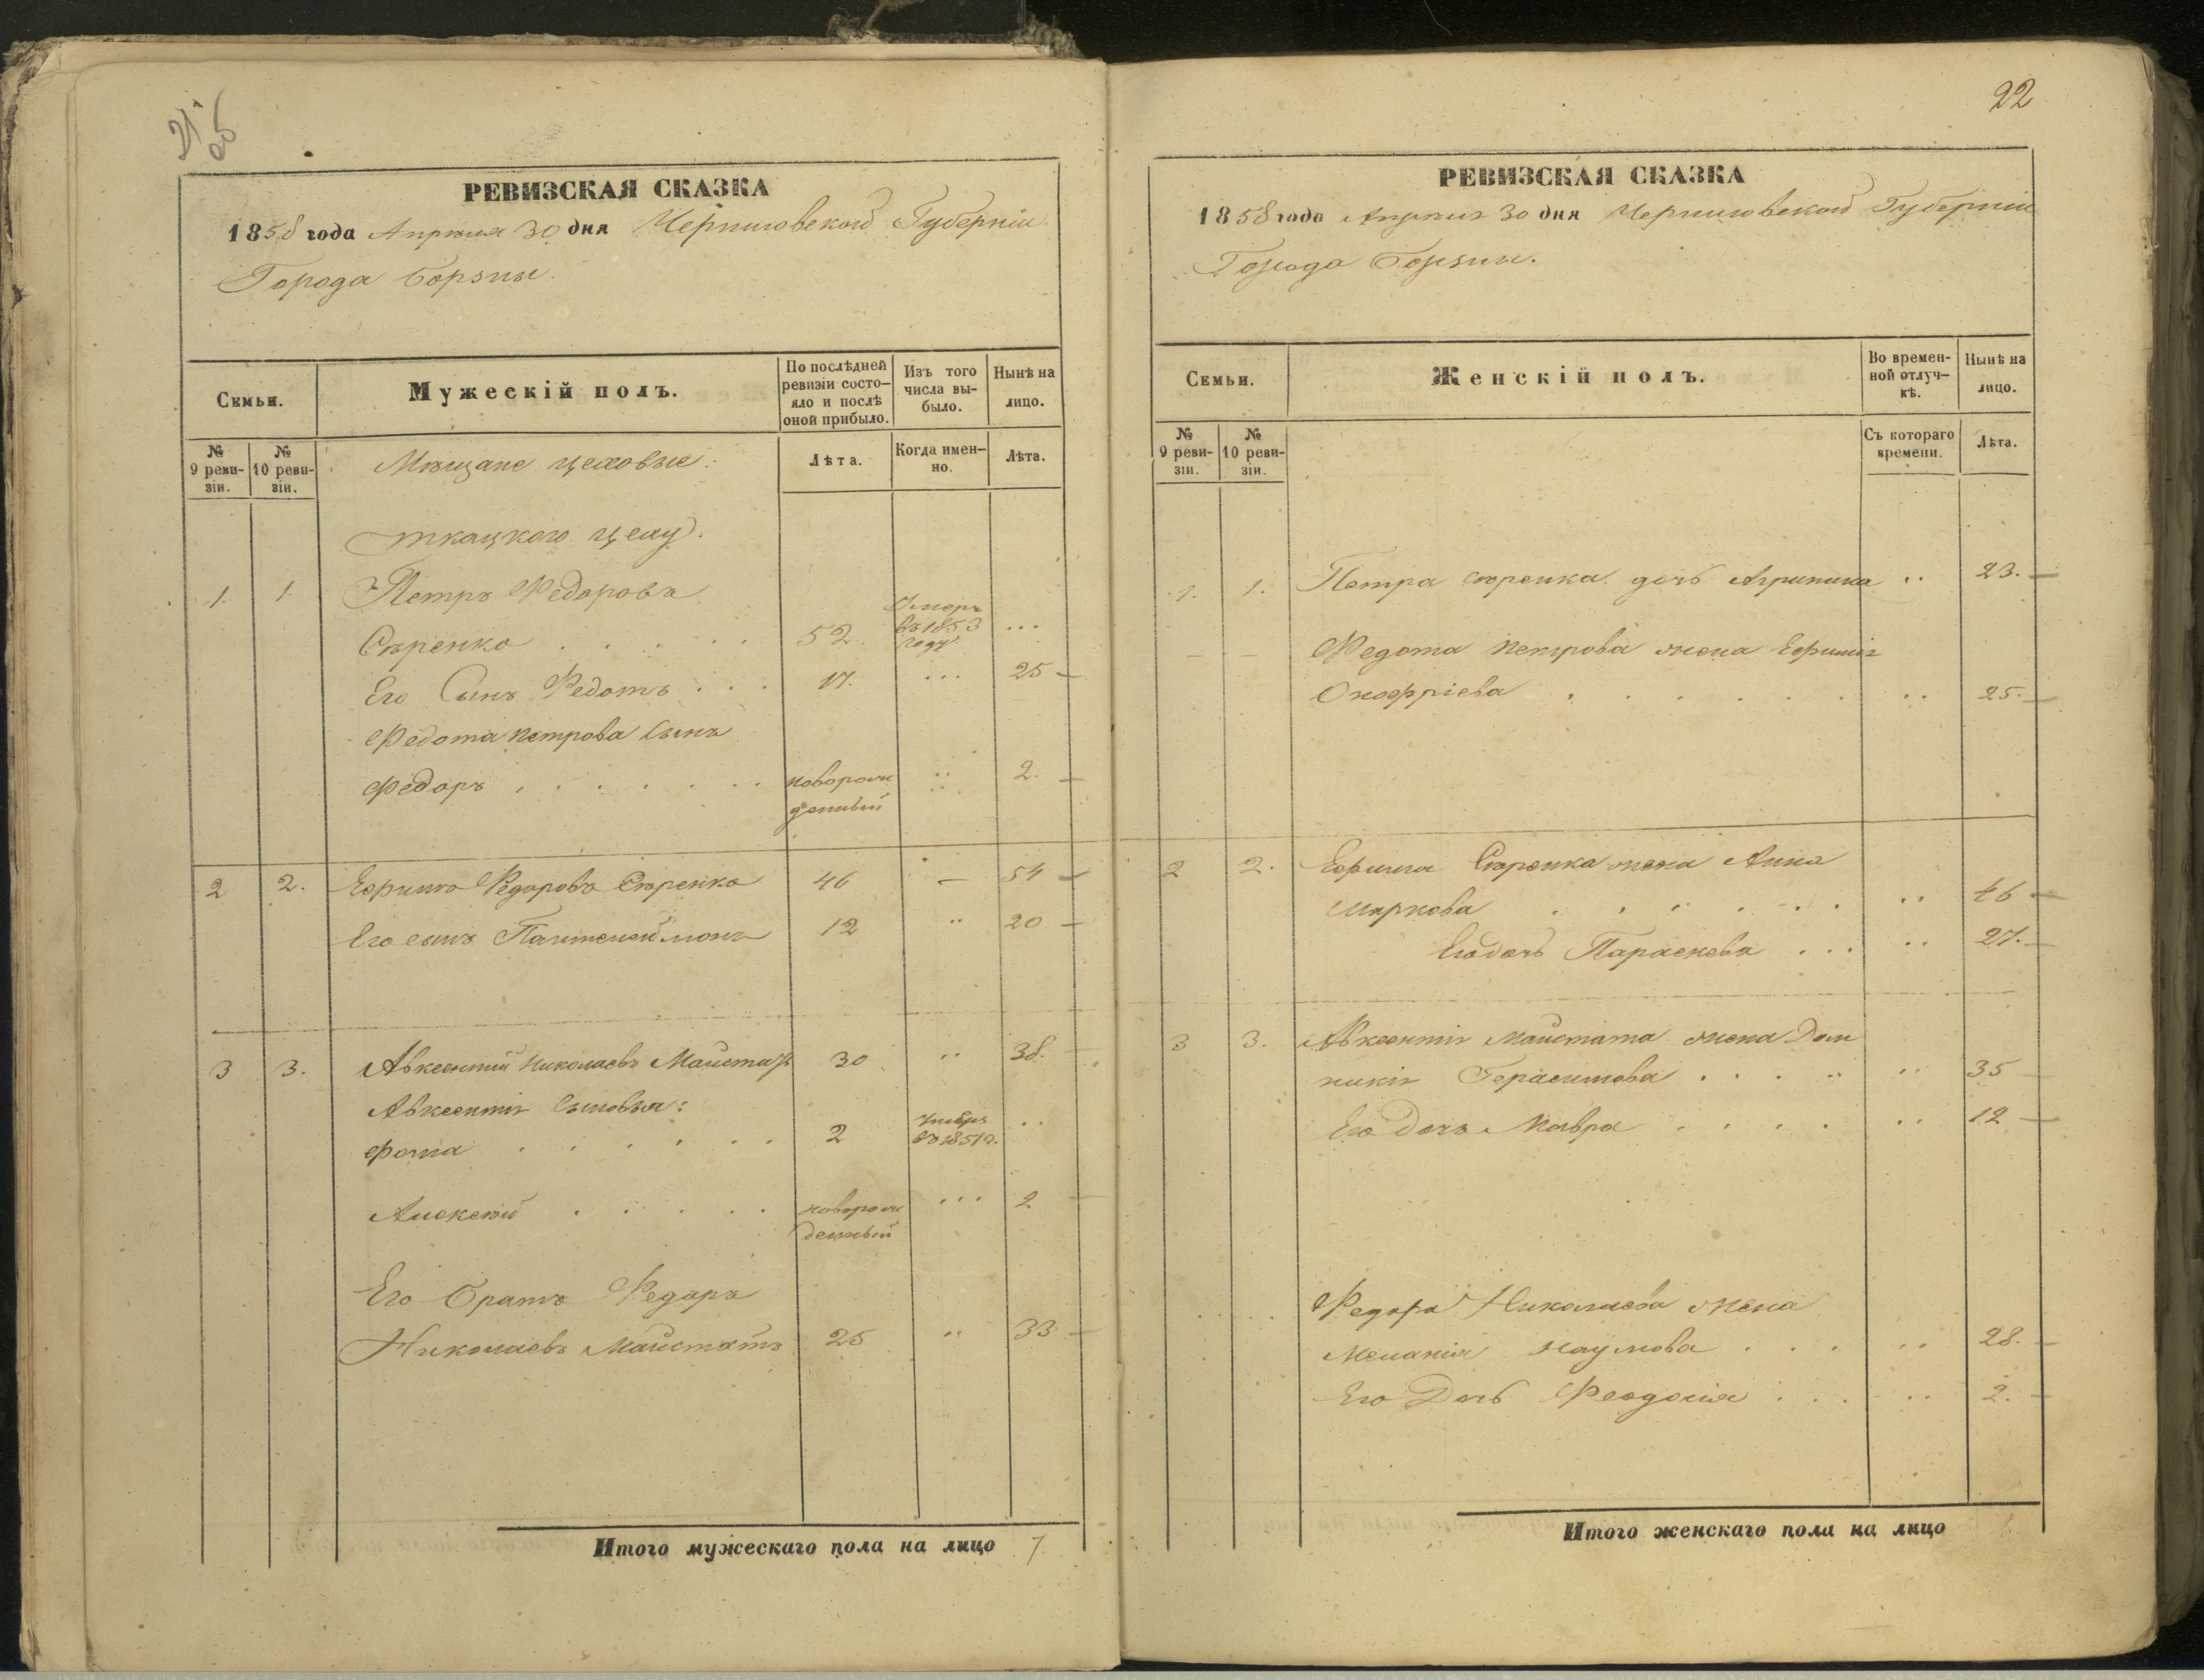 22
РЕВИЗСКАЯ СКАЗКА
1858 года Апрѣля 30 дня Черниговской Губерніи
Города Борзны.
Семьи.
Мужескій полъ.
По послѣдней ревизіи состо-
яло и послѣ оной прибыло.
Изъ того числа вы-
было.
Нынѣ на лицо.
№ 9 реви-
зіи.
№ 10 реви-
зіи.
Лѣта.
Когда имен-
но.
Лѣта.
Мѣщане цеховые:
ткацкого цеху.
1. 1. Петръ Федоровъ
Сѣренко . . . . . 52. Умеръ въ 1853 году. ...
Его Сынъ Федотъ . . . 17. ... 25 —
Федота Петрова Сынъ
Федоръ . . . . . . . новорож
денный .. 2. —
2 2. Ефимъ Федоровъ Сѣренко 46 — 54 —
Его сынъ Пантелеймонъ 12 .. 20 —
3 3. Авксентій Николаевъ 30 .. 38. —
Авксентія Сыновья:
Фома . . . . . . 2 въ 1851 г. ..
Алексѣй . . . . . новорож
денный ... 2 —
Его Братъ Федоръ
Николаевъ Майстатъ 25 .. 33. —
Итого мужескаго пола на лицо 7
РЕВИЗСКАЯ СКАЗКА
1858 года Апрѣля 30 дня Черниговской Губерніи
Города Борзны.
Семьи.
Женскій полъ.
Во времен-
ной отлуч-
кѣ.
Нынѣ на лицо.
№ 9 реви-
зіи.
№ 10 реви-
зіи.
Съ котораго времени.
Лѣта.
1. 1. Петра Сѣренка дочь Агрипина .. 23. —
— — Федота Петрова жена Ефимія
Онофріева . . . . . . .. 25. —
2 2. Ефима Сѣренка жена Анна
Маркова . . . . . . .. 46 —
Его дочь Параскева . . . .. 27. —
3 3. Авксентія Майстата жена Дом
никія Герасимова . . . .. .. 35 —
Его Дочь Мавра . . . . .. 12 —
Федора Николаева жена
Меланія Наумова . . . .. 28. —
Его Дочь Феодосія . . . .. 2. —
Итого женскаго пола на лицо